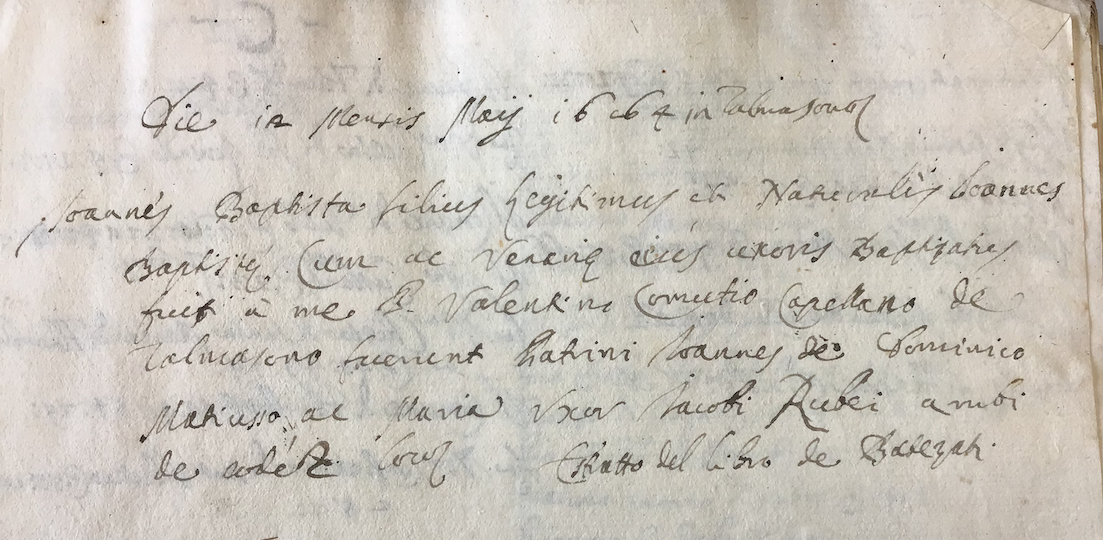 Die 12 Mensis Maij 1664 in Talmasonos
Joannes Baptista filius legitimus et Naturalis Joannes
Baptistę Cum ac Venerię eius uxoris Baptizatus
fuit à me P. Valentino Comutio Capellano de
Talmasono fuerunt Patrini Joannes de Dominico
Matiusso ac Maria Uxor Jacobi Rubei ambi
de eodẽ loco Estratto del libro de Batezati